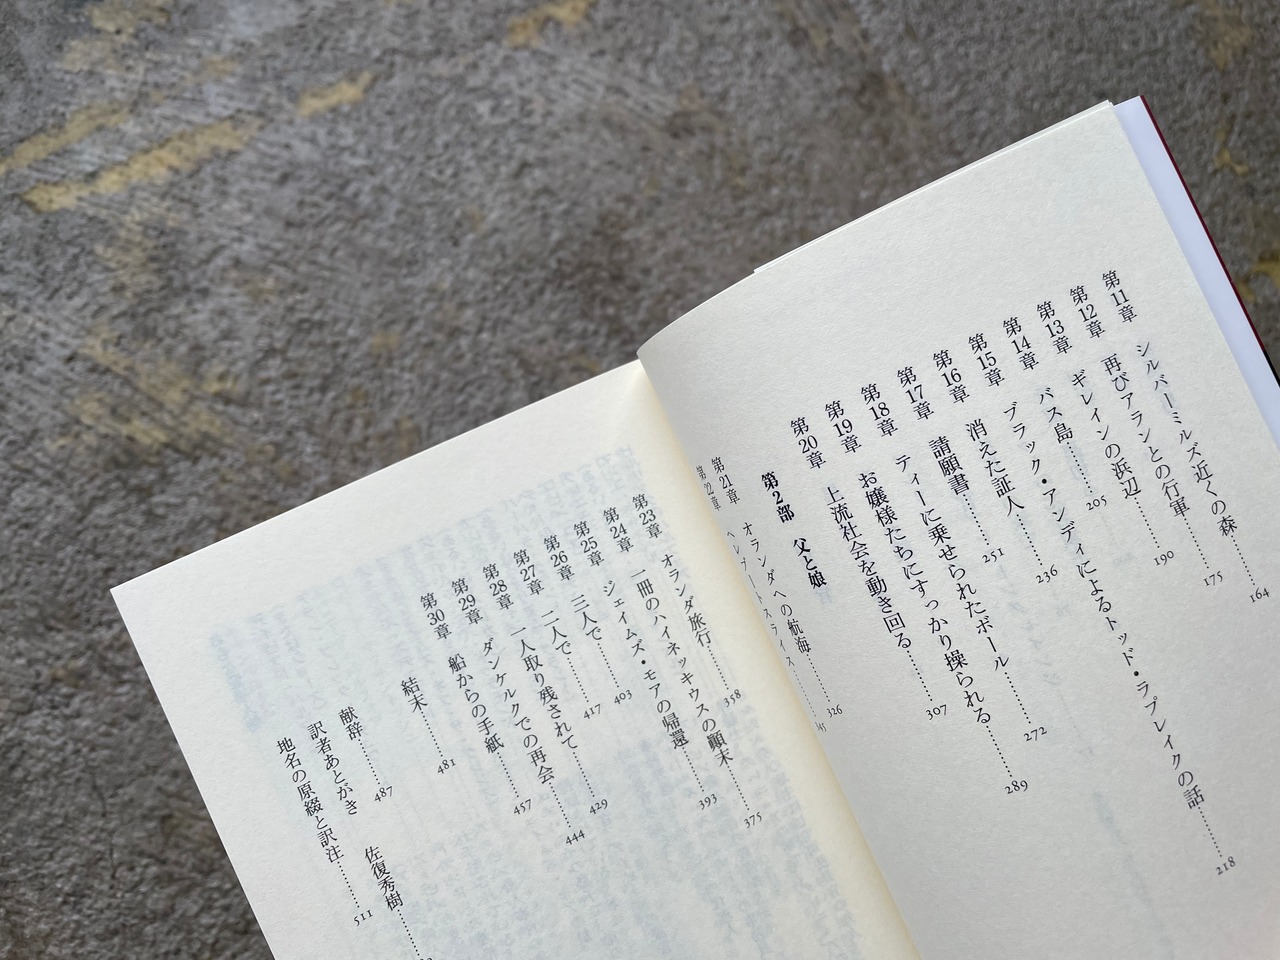 第11章 シルバーミルズ近くの森……164
第12章 再びアランとの行軍……175
第13章 ギレインの浜辺……190
第14章 バス島……205
第15章 ブラック・アンディによるトッド・ラプレイクの話……218
第16章 消えた証人……236
第17章 請願書……251
第18章 ティーに乗せられたボール……272
第19章 お嬢様たちにすっかり操られる……289
第20章 上流社会を動き回る……307
第2部 父と娘
第21章 オランダへの航海……326
第22章
第23章 オランダ旅行……358
第24章 一冊のハイネッキウスの顚末……375
第25章 ジェイムズ・モアの帰還……393
第26章 三人で……403
第27章 二人で……417
第28章 一人取り残されて……429
第29章 ダンケルクでの再会……444
第30章 船からの手紙……457
結末……481
献辞……487
訳者あとがき 佐復秀樹……
地名の原綴と訳注……511